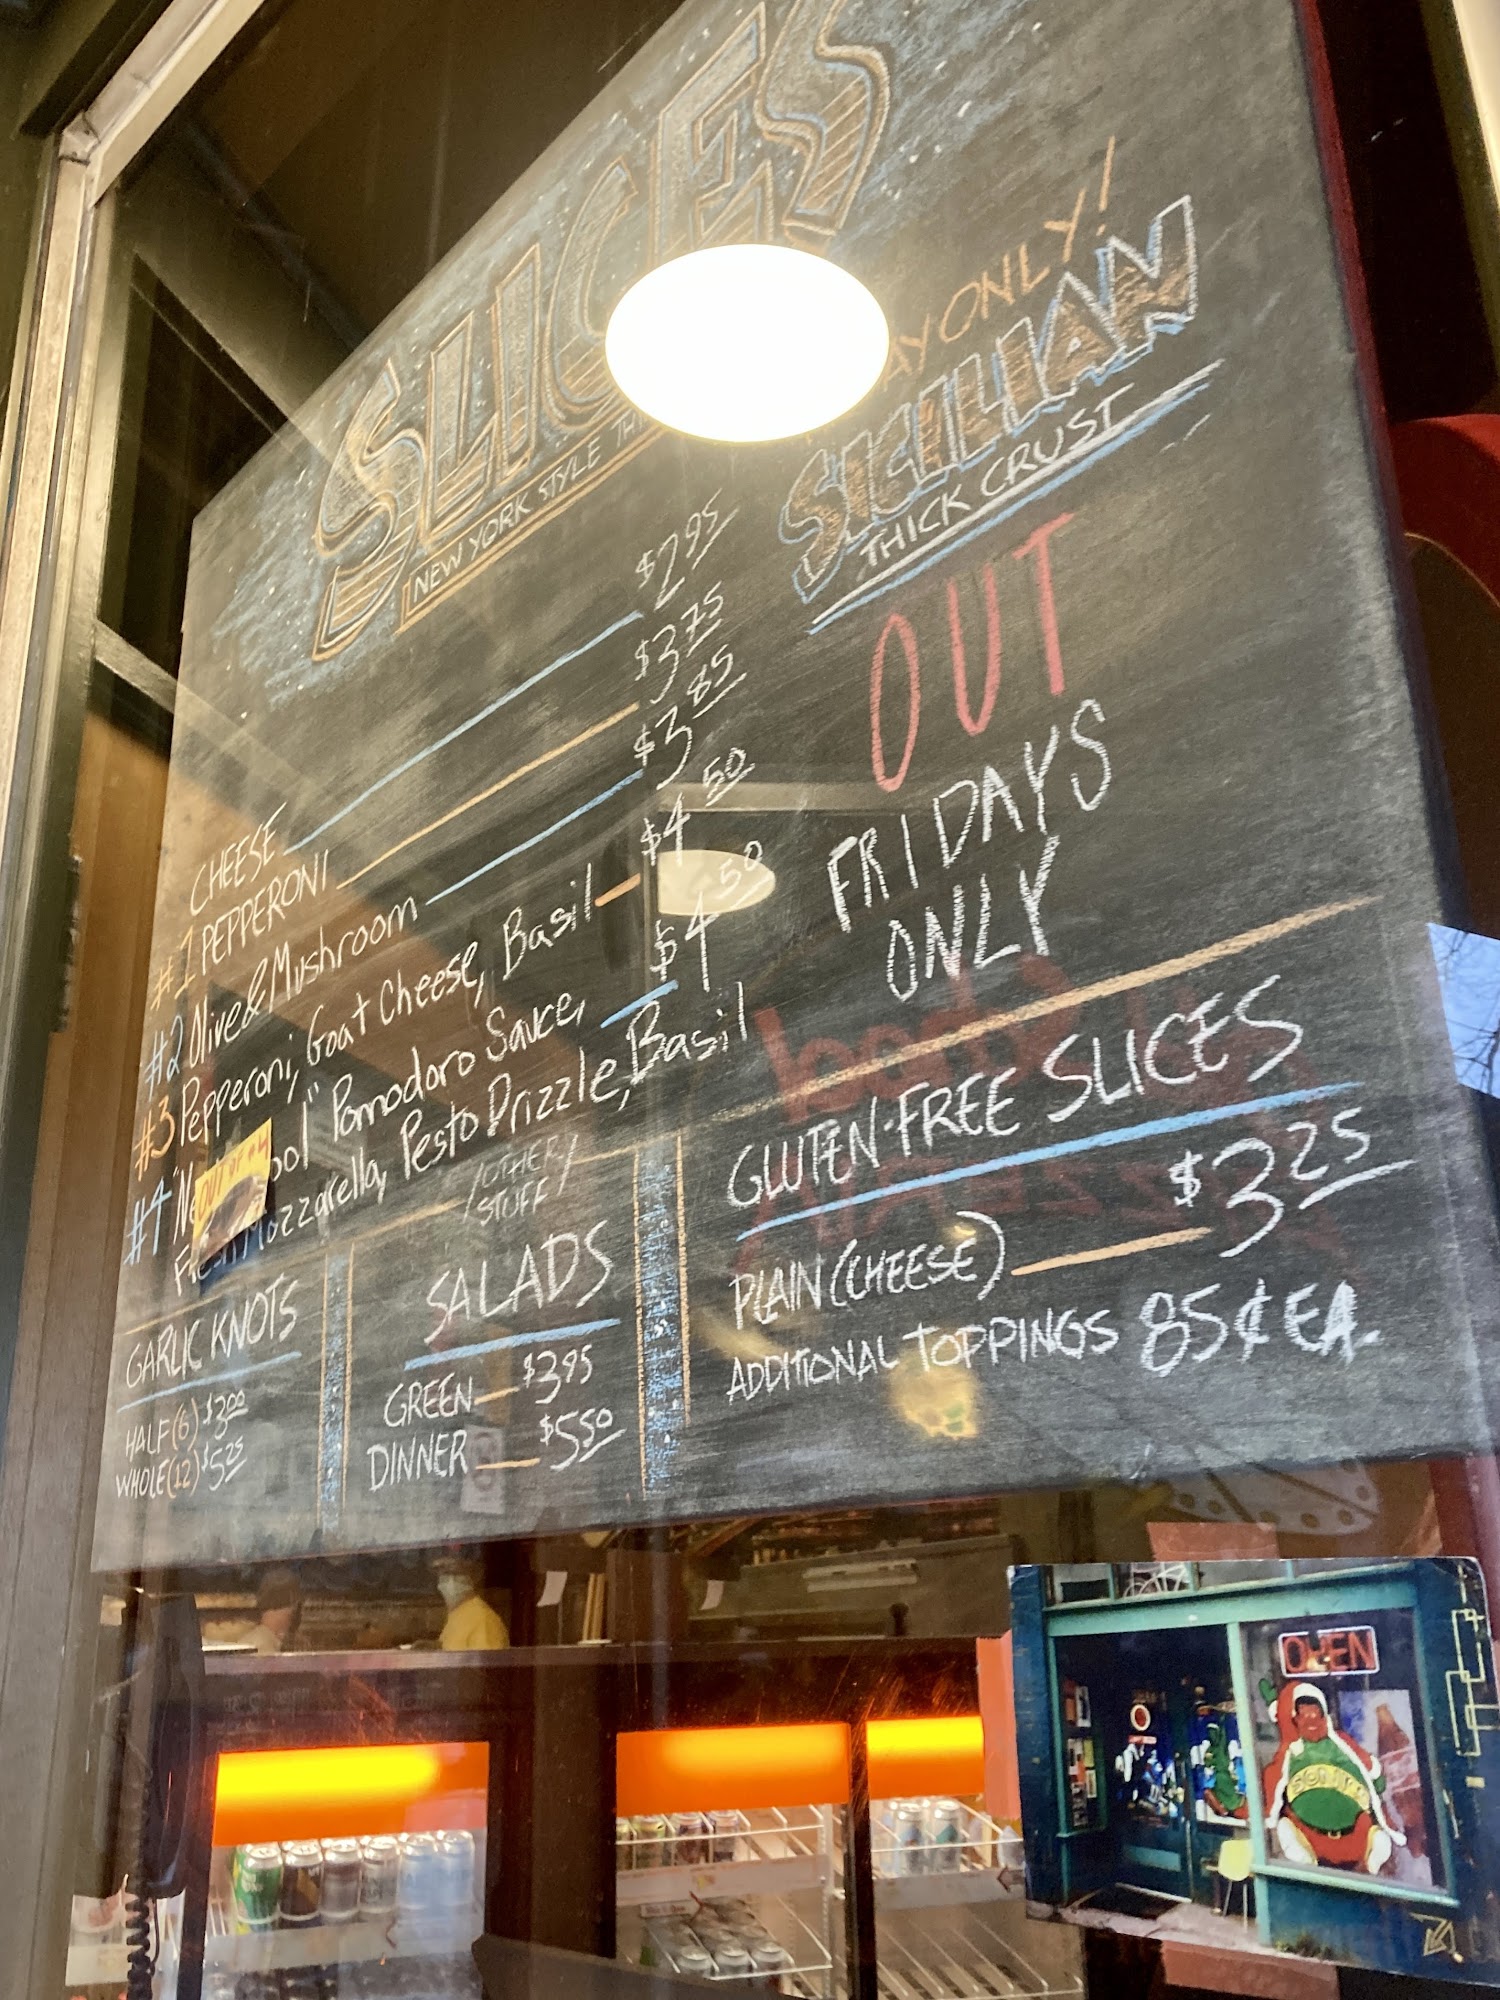 SLICES
NEW YORK STYLE
CHEESE $2.95
#1 PEPPERONI $3.75
#2 Olive & Mushroom $3.85
#3 Pepperoni, Goat Cheese, Basil $4.50
#4 "Ne ool" Pomodoro Sauce, $4.50
Fresh Mozzarella, Pesto Drizzle, Basil
OUT OF #4
ONLY!
SICILIAN
THICK CRUST
OUT
FRIDAYS
ONLY
/OTHER
STUFF/
GARLIC KNOTS
HALF (6) $3.00
WHOLE (12) $5.25
SALADS
GREEN $3.95
DINNER $5.50
GLUTEN-FREE SLICES
PLAIN (CHEESE) $3.25
ADDITIONAL TOPPINGS 85¢ EA.
OPEN